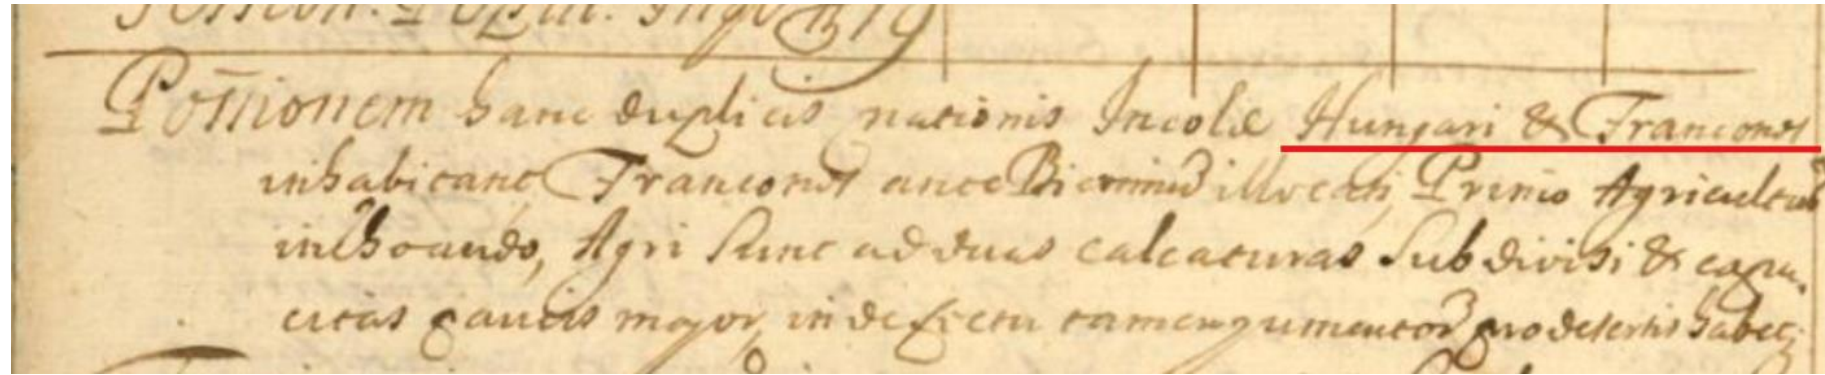 Possionem hanc duplicis nationis Incolæ Hungari & Francones
inhabitant Francones ante Biennium illocati, Primo Agricultura
inchoando, Agri sunt ad duas calcaturas Subdivisi & capa-
citas paucis major, in defectu tamen jumentorum pro desertis habet;